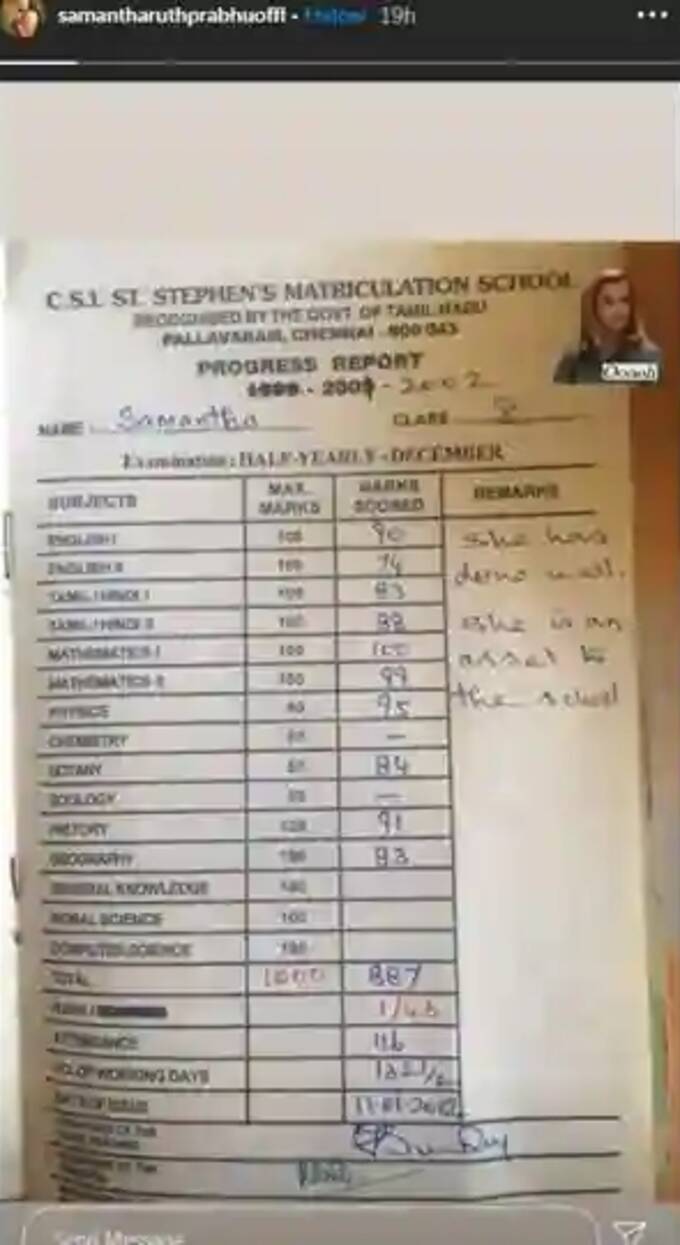 samantharuthprabhuoffl • Follow 19h
C.S.I. ST. STEPHEN'S MATRICULATION SCHOOL
RECOGNISED BY THE GOVT. OF TAMIL NADU
PALLAVARAM, CHENNAI - 600 043
Ooooh
PROGRESS REPORT
- 2001 - 2002
NAME: Samantha CLASS
Examination: HALF-YEARLY - DECEMBER
SUBJECTS MAX. MARKS MARKS SCORED REMARKS
ENGLISH I 100 90 She has
ENGLISH II 100 74 done well.
TAMIL / HINDI I 100 83
TAMIL / HINDI II 100 88 She is an
MATHEMATICS-I 100 100 asset to
MATHEMATICS-II 100 99
PHYSICS 95 the school
CHEMISTRY –
BOTANY 84
ZOOLOGY –
HISTORY 91
GEOGRAPHY 100 83
GENERAL KNOWLEDGE 100
MORAL SCIENCE 100
COMPUTER SCIENCE 100
TOTAL 1000 887
RANK
ATTENDANCE 116
NO. OF WORKING DAYS
DATE OF ISSUE 11-01-2002
Send Message